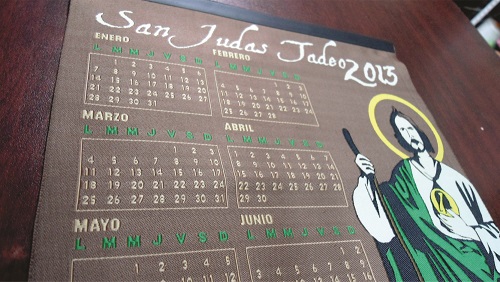 San Judas Tadeo 2013
ENERO
L M M J V S D
1 2 3 4 5 6
7 8 9 10 11 12 13
14 15 16 17 18 19 20
21 22 23 24 25 26 27
28 29 30 31
FEBRERO
L M M J V S D
1 2 3
4 5 6 7 8 9 10
11 12 13 14 15 16 17
18 19 20 21 22 23 24
25 26 27 28
MARZO
L M M J V S D
1 2 3
4 5 6 7 8 9 10
11 12 13 14 15 16 17
18 19 20 21 22 23 24
25 26 27 28 29 30 31
ABRIL
L M M J V S D
1 2 3 4 5 6 7
8 9 10 11 12 13 14
15 16 17 18 19 20 21
22 23 24 25 26 27 28
29 30
MAYO
L M M J V S D
1 2 3 4 5
JUNIO
L M M J V S D
1 2